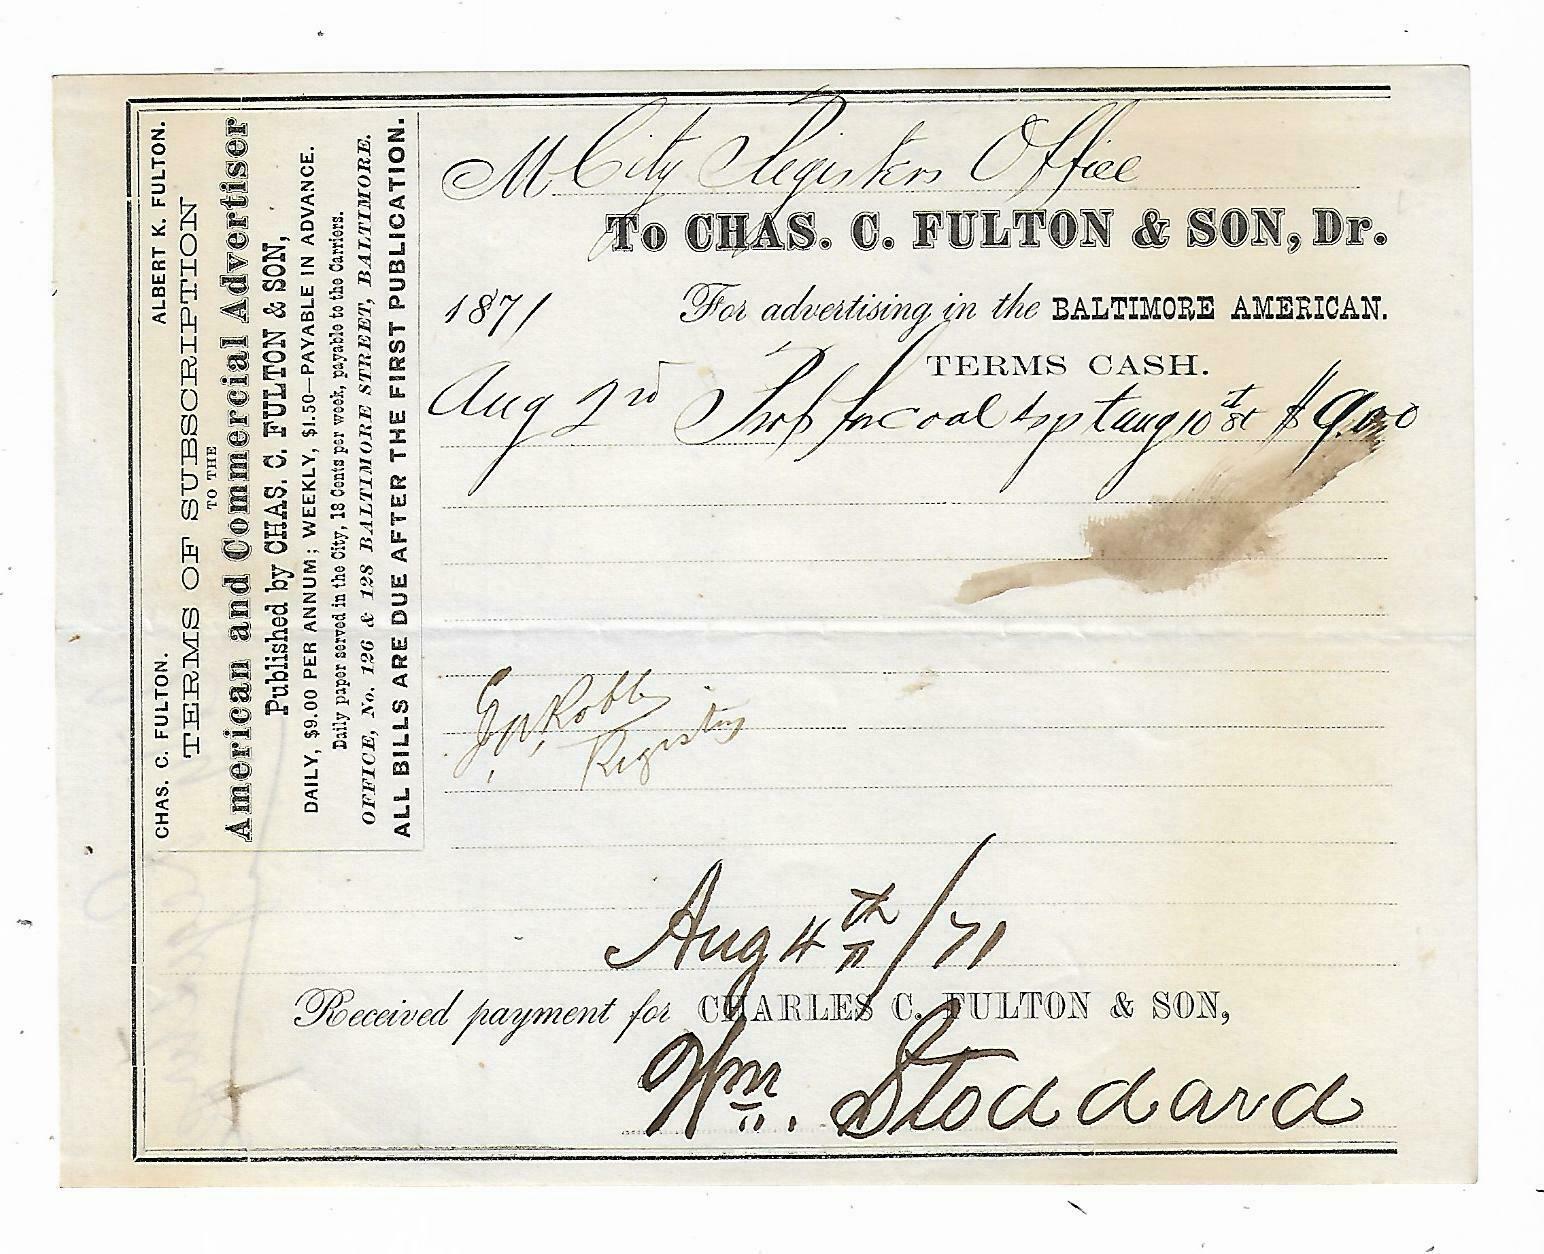 CHAS. C. FULTON. ALBERT K. FULTON.
TERMS OF SUBSCRIPTION
TO THE
American and Commercial Advertiser
Published by CHAS. C. FULTON & SON,
DAILY, $9.00 PER ANNUM; WEEKLY, $1.50—PAYABLE IN ADVANCE.
Daily paper served in the City, 18 Cents per week, payable to the Carriers.
OFFICE, No. 126 & 128 BALTIMORE STREET, BALTIMORE.
ALL BILLS ARE DUE AFTER THE FIRST PUBLICATION.
M City Registers Office
To CHAS. C. FULTON & SON, Dr.
1871 For advertising in the BALTIMORE AMERICAN.
TERMS CASH.
Aug 2nd Prop for coal aug 10 $9.00
Robb
Register
Aug 4th/71
Received payment for CHARLES C. FULTON & SON,
Wm. Stoddard